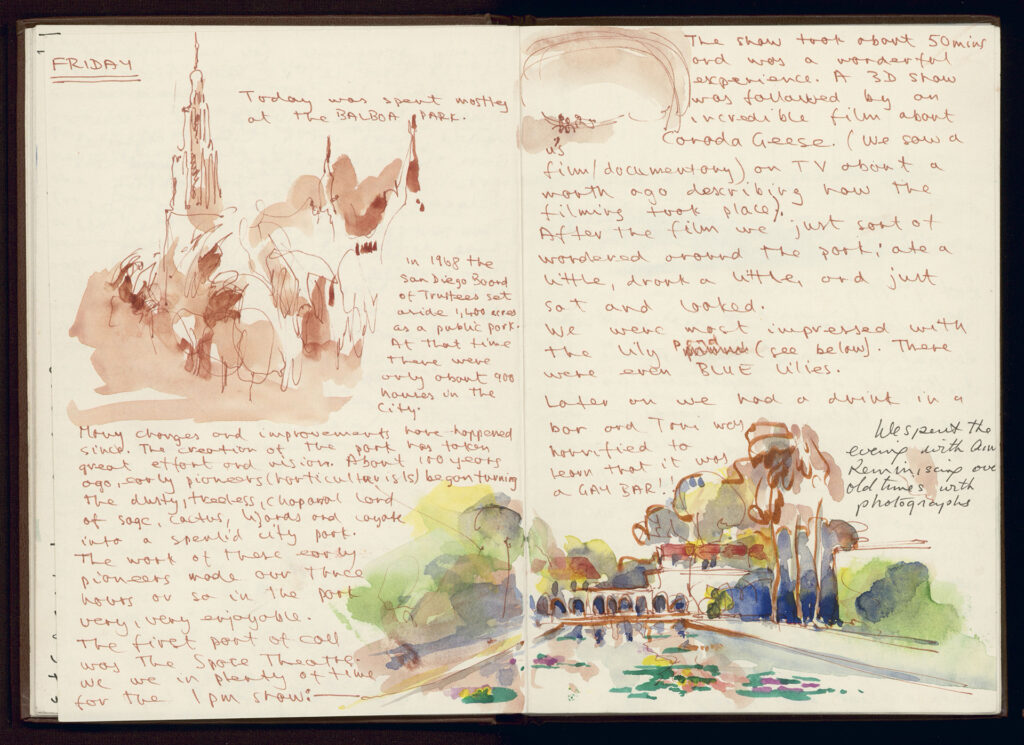 FRIDAY
Today was spent mostly
at the BALBOA PARK.
In 1968 the
San Diego Board
of Trustees set
aside 1,400 acres
as a public park.
At that time
there were
only about 900
houses in the
City.
Many changes and improvements have happened
since. The creation of the park has taken
great effort and vision. About 100 years
ago, early pioneers (horticulturists) began turning
the dusty, treeless, chaparal land
of sage, cactus, lizards and coyote
into a spendid city park.
The work of these early
pioneers made our three
hours or so in the park
very, very enjoyable.
The first port of call
was The Space Theatre.
We we in plenty of time
for the 1pm show:
The show took about 50mins
and was a wonderful
experience. A 3D show
was followed by an
incredible film about
Canada Geese. (We saw a
film/documentary) on TV about a
month ago describing how the
filming took place).
After the film we just sort of
wandered around the park; ate a
little, drank a little, and just
sat and looked.
We were most impressed with
the lily (see below). There
were even BLUE lilies.
Later on we had a drink in a
bar and Toni was
horrified to
learn that it was
a GAY BAR!!
us
We spent the
evening with
over
old times with
photographs